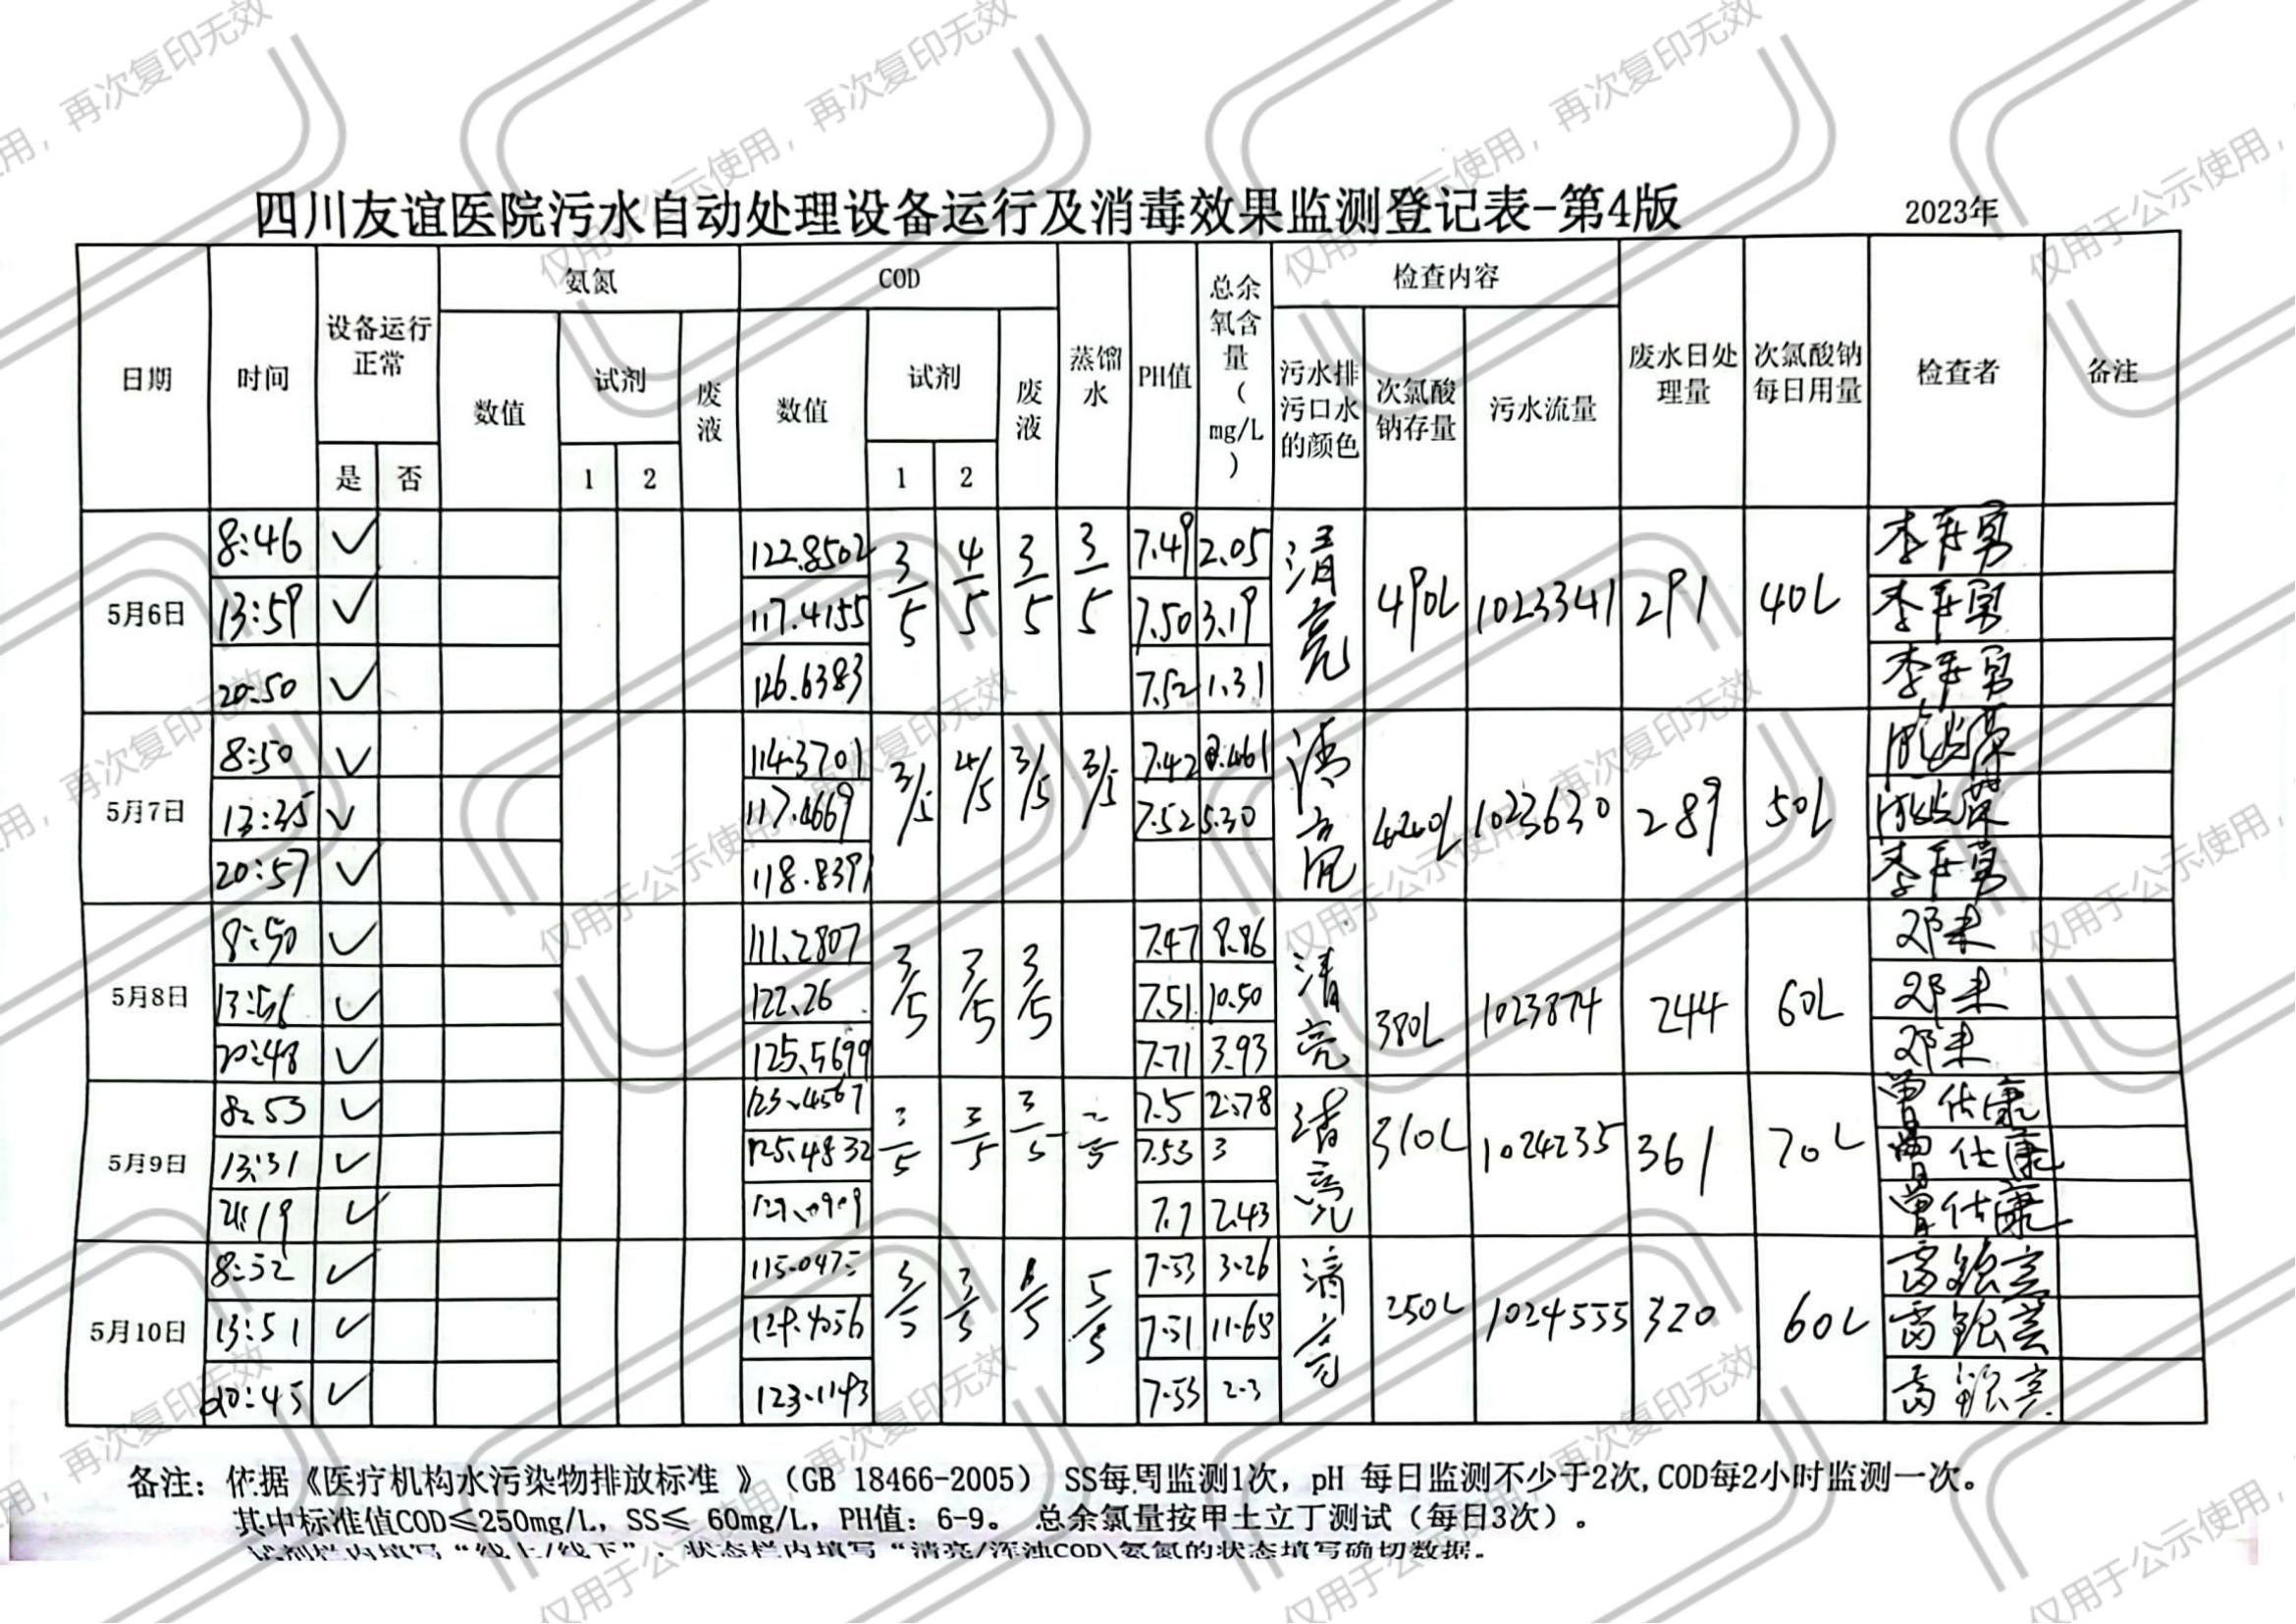 四川友谊医院污水自动处理设备运行及消毒效果监测登记表-第4版 2023年
日期 时间 设备运行正常 是 否 氨氮 数值 试剂 1 2 废液 COD 数值 试剂 1 2 废液 蒸馏水 PH值 总余氧含量(mg/L) 检查内容 污水排污口水的颜色 次氯酸钠存量 污水流量 废水日处理量 次氯酸钠每日用量 检查者 备注
5月6日 8:46 ✓ 122.8502 3/5 4/5 3/5 3/5 7.49 2.05 清亮 490L 1023341 291 40L
13:59 ✓ 117.4155 7.50 3.19
20:50 ✓ 126.6383 7.52 1.31
5月7日 8:50 ✓ 114.3701 3/5 4/5 3/5 3/5 7.42 清亮 1023630 289 50L
13:35 ✓ 117.4669 7.52 5.30
20:57 ✓ 118.8391
5月8日 8:50 ✓ 111.2807 3/5 3/5 3/5 7.47 8.86 清亮 380L 1023874 244 60L
13:56 ✓ 122.26 7.51 10.50
20:48 ✓ 125.5699 7.71 3.93
5月9日 8:53 ✓ 123.4567 3/5 3/5 3/5 7.5 2.78 清亮 310L 1024235 361 70L 曾仕康
13:31 ✓ 125.4832 7.53 3 曾仕康
21:19 ✓ 7.7 2.43 曾仕康
5月10日 8:52 ✓ 3/5 3/5 5/5 7.53 3.26 清亮 250L 1024555 320 60L
13:51 ✓ 7.51 11.68
20:45 ✓ 123.1143 7.53 2.3
备注：依据《医疗机构水污染物排放标准 》（GB 18466-2005） SS每周监测1次，pH 每日监测不少于2次,COD每2小时监测一次。
其中标准值COD≤250mg/L，SS≤ 60mg/L，PH值：6-9。 总余氯量按甲土立丁测试（每日3次）。
试剂栏内填写“线上/线下”，状态栏内填写“清亮/浑浊COD\氨氮的状态填写确切数据。
仅用于公示使用，再次复印无效